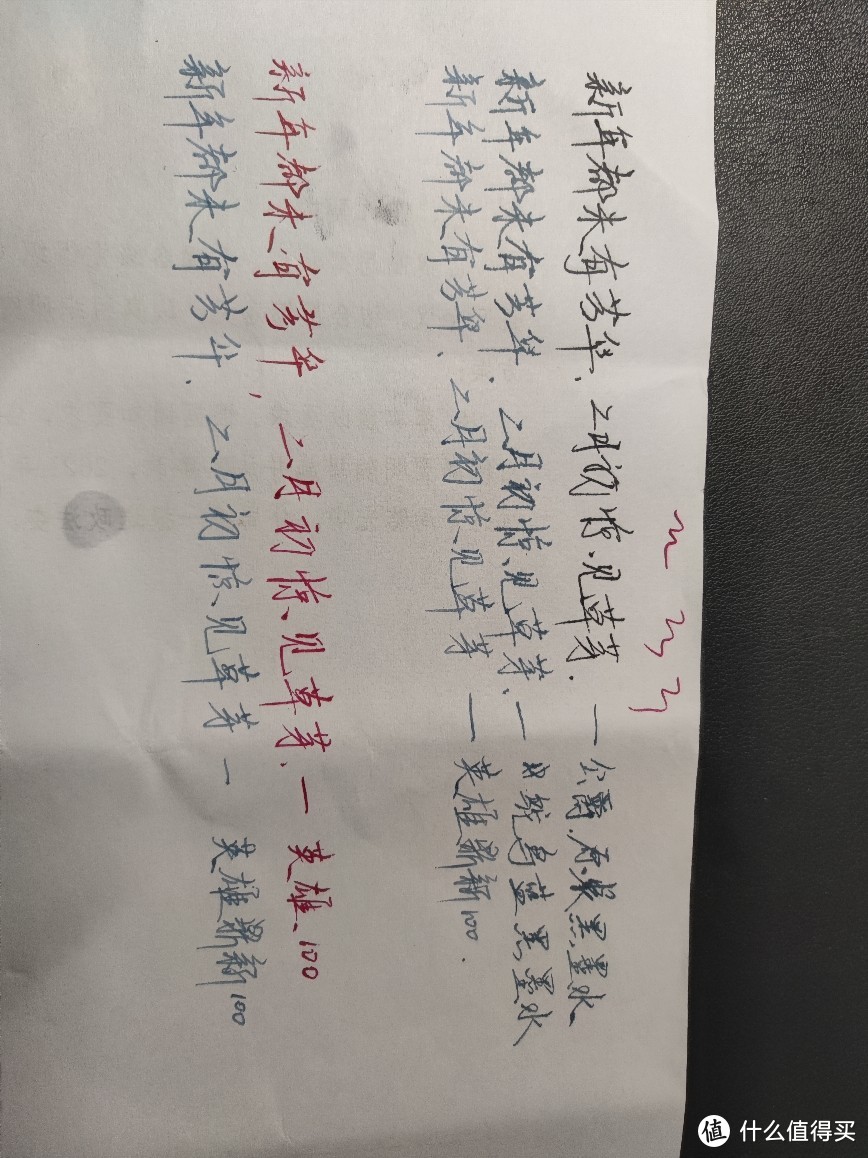 新年都未有芳华、二月初惊见草芽. — 公爵原装黑墨水
新年都未有芳华. 二月初惊见草芽、— 蓝黑墨水
新年都未有芳华、二月初惊见草芽 — 英雄鼎新100.
新年都未有芳华, 二月初惊见草芽、— 英雄100
新年都未有芳华. 二月初惊见草芽 — 英雄鼎新100
值 什么值得买